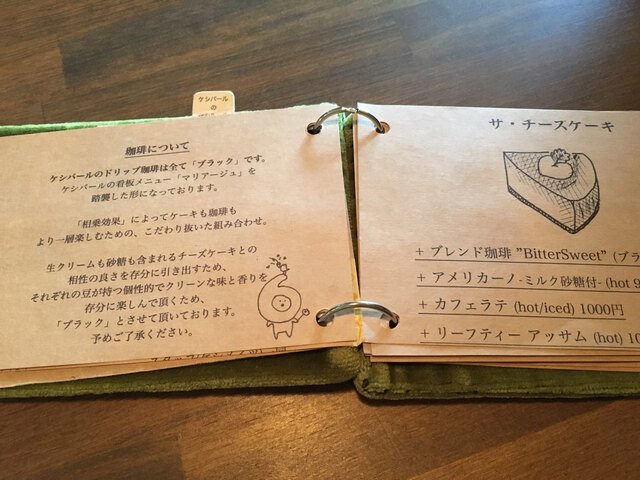 ケシパール
の
珈琲について
ケシパールのドリップ珈琲は全て「ブラック」です。
ケシパールの看板メニュー「マリアージュ」を
踏襲した形になっております。
「相乗効果」によってケーキも珈琲も
より一層楽しむための、こだわり抜いた組み合わせ。
生クリームも砂糖も含まれるチーズケーキとの
相性の良さを存分に引き出すため、
それぞれの豆が持つ個性的でクリーンな味と香りを
存分に楽しんで頂くため、
「ブラック」とさせて頂いております。
予めご了承ください。
サ・チーズケーキ
+ ブレンド珈琲 "BitterSweet" (ブラ
+ アメリカーノ-ミルク砂糖付- (hot 9
+ カフェラテ (hot/iced) 1000円
+ リーフティー アッサム (hot) 10